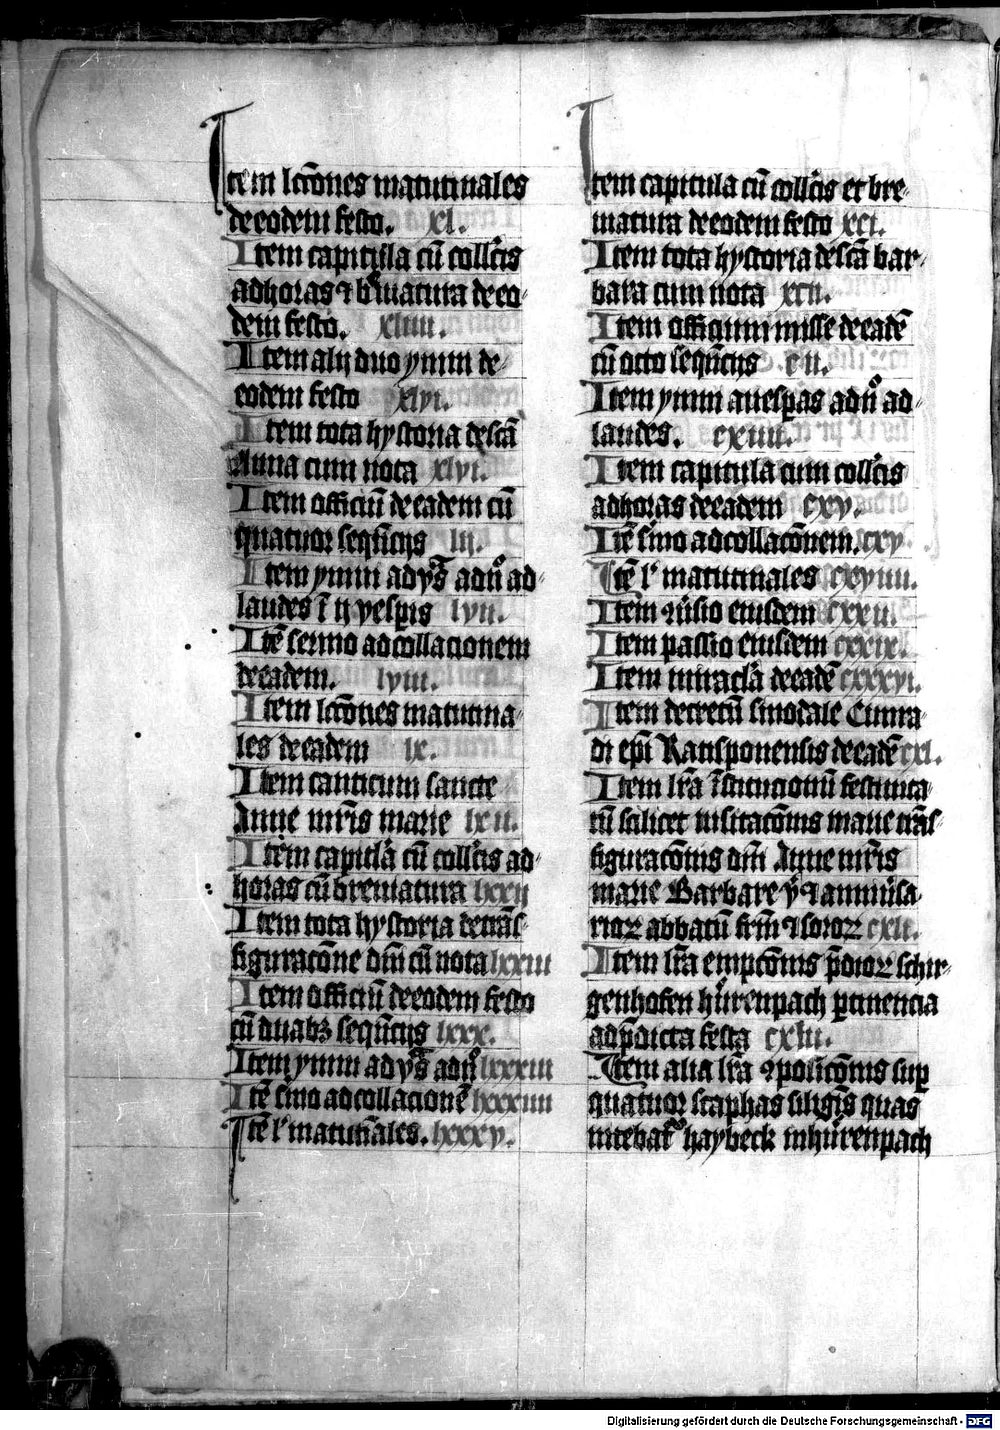 Item lc̄ōnes matutinales
de eodem festo. xl.
Item capitula cū coll'cis
ad horas ⁊ b'uiatura de eo-
dem festo. xliiii.
Item alij duo ymni de
eodem festo xlvi.
Item tota hystoria de scā
Anna cum nota xlvi.
Item officiū de eadem cū
quatuor seqn̄cijs lii.
Item ymni ad vs̄ ad nͦ ad
laudes ī ij vesp̄is lvii.
Itē sermo ad collacionem
de eadem. lviii.
Item lc̄ōnes matutina-
les de eadem lx.
Item canticum sancte
Anne mr̄is marie lxii.
Item capitl'a cū coll'cis ad
horas cū breuiatura lxxij
Item tota hystoria de trās-
figuracōne dn̄i cū nota lxxiii
Item officiū de eodem festo
cū duabꝫ seqn̄cijs lxxx.
Item ymni ad vs̄ ad nͦ lxxxiii
Itē s'mo ad collacionē lxxxiiii
Itē l' matutin̄ales. lxxxv.
Item capitula cū coll'cis et bre-
uiatura de eodem festo xci.
Item tota hystoria de scā bar-
bara cum nota xcii.
Item officium misse de eadē
cū octo seqn̄cijs cii.
Item ymni a uesp̄as ad nͦ ad
laudes. cxiiii.
Item capitula cum coll'cis
ad horas de eadem cxv.
Itē s'mo ad collacōnem. cxv
Itē l' matutinales cxviii.
Item ꝯu'sio eiusdem cxxii.
Item passio eiusdem cxxix.
Item miracl'a de eadē cxxxvi.
Item decretū sinodale Cunra-
di ep̄i Ratisponensis de eadē cxl.
Item lr̄a īstitucionū festiuita-
tū scilicet visitacōnis marie trās-
figuracōnis dn̄i Anne mr̄is
marie Barbare v̄ ⁊ anniu'sa-
rioꝝ abbatū frm̄ ⁊ soroꝝ cxlii.
Item lr̄a empcōnis p̄dioꝝ schir-
genhofen hürenpach ꝑtinencia
ad p̄dicta festa cxliii.
Item alia lr̄a ꝯposicōnis suꝑ
quatuor scaphas siligīs quas
haybeck in hürenpach